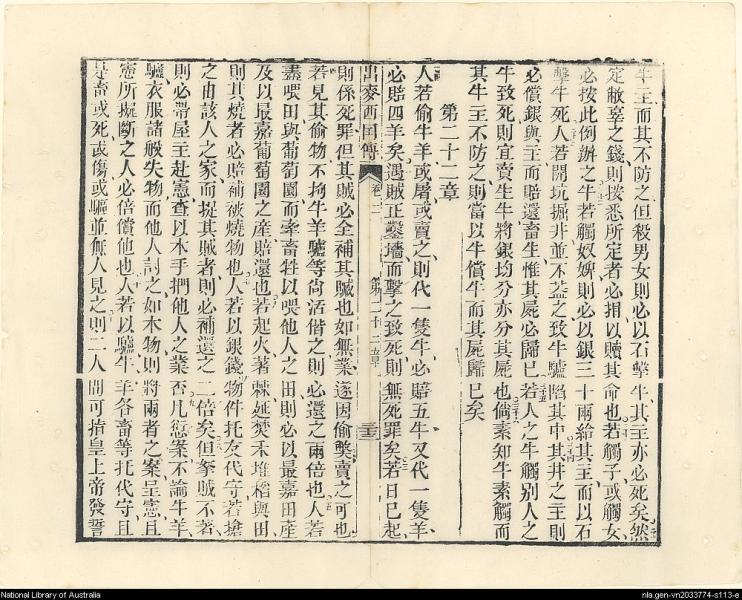 牛主而其不防之但殺男女則必以石擊牛其主亦必死矣然
定敝辜之錢則按悉所定者必捐以贖其命也若觸子或觸女
必按此例辦之牛若觸奴婢則必以銀三十兩給其主而以石
擊牛死人若開坑掘井並不葢之致牛驢陷其中其井之主則
必償銀與主而賠還畜生惟其屍必歸已若人之牛觸別人之
牛致死則宜賣生牛將銀均分亦分其屍也倘素知牛素觸而
其牛主不防之則當以牛償牛而其屍歸已矣
第二十二章
人若偷牛羊或屠或賣之則代一隻牛必賠五牛又代一隻羊
必賠四羊矣遇賊正鑿墻而擊之致死則無死罪矣若日已起
出麥西國傳 卷二 第二十二章 二十三
則係死罪但其賊必全補其贓也如無業遂因偷獘賣之可也
若見其偷物不拘牛羊驢等尚活偕之則必還之兩倍也人若
盡喂田與葡萄園而牽畜牲以喂他人之田則必以最嘉田產
及以最嘉葡萄園之產賠還也若起火著棘延焚禾堆稻與田
則其燒者必賠補被燒物也人若以銀錢物件托友代守若搶
之由該人之家而捉其賊者則必補還之二倍矣但拏賊不著
則必帶屋主赴憲查以本手捫他人之業否凡愆案不論牛羊
驢衣服諸般失物而他人討之如本物則將兩者之案呈憲且
憲所擬斷之人必倍償他也人若以驢牛羊各畜等托代守且
是畜或死或傷或驅並無人見之則二人間可指皇上帝發誓
National Library of Australia
nla.gen-vn2033774-s113-e